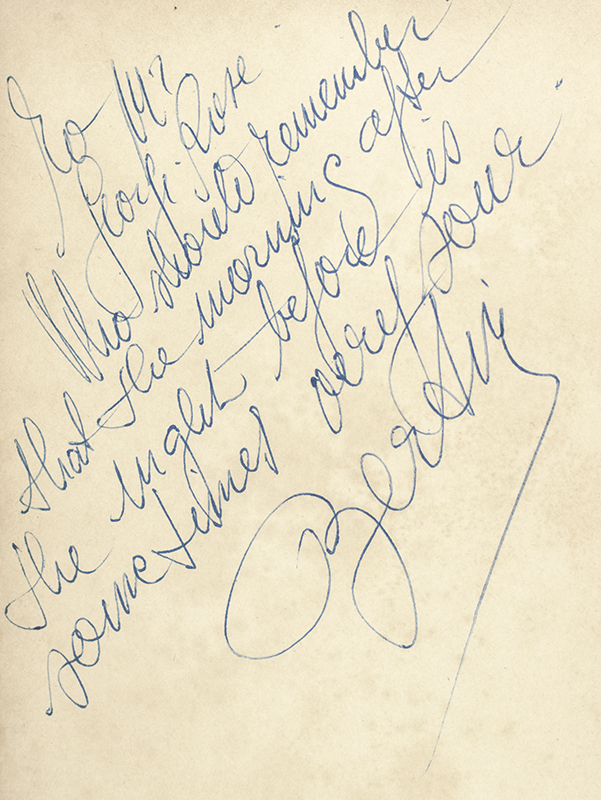 To Mr
Georgi Rose
Who should remember
that the morning after
the night before is
sometimes very sour
Bertin